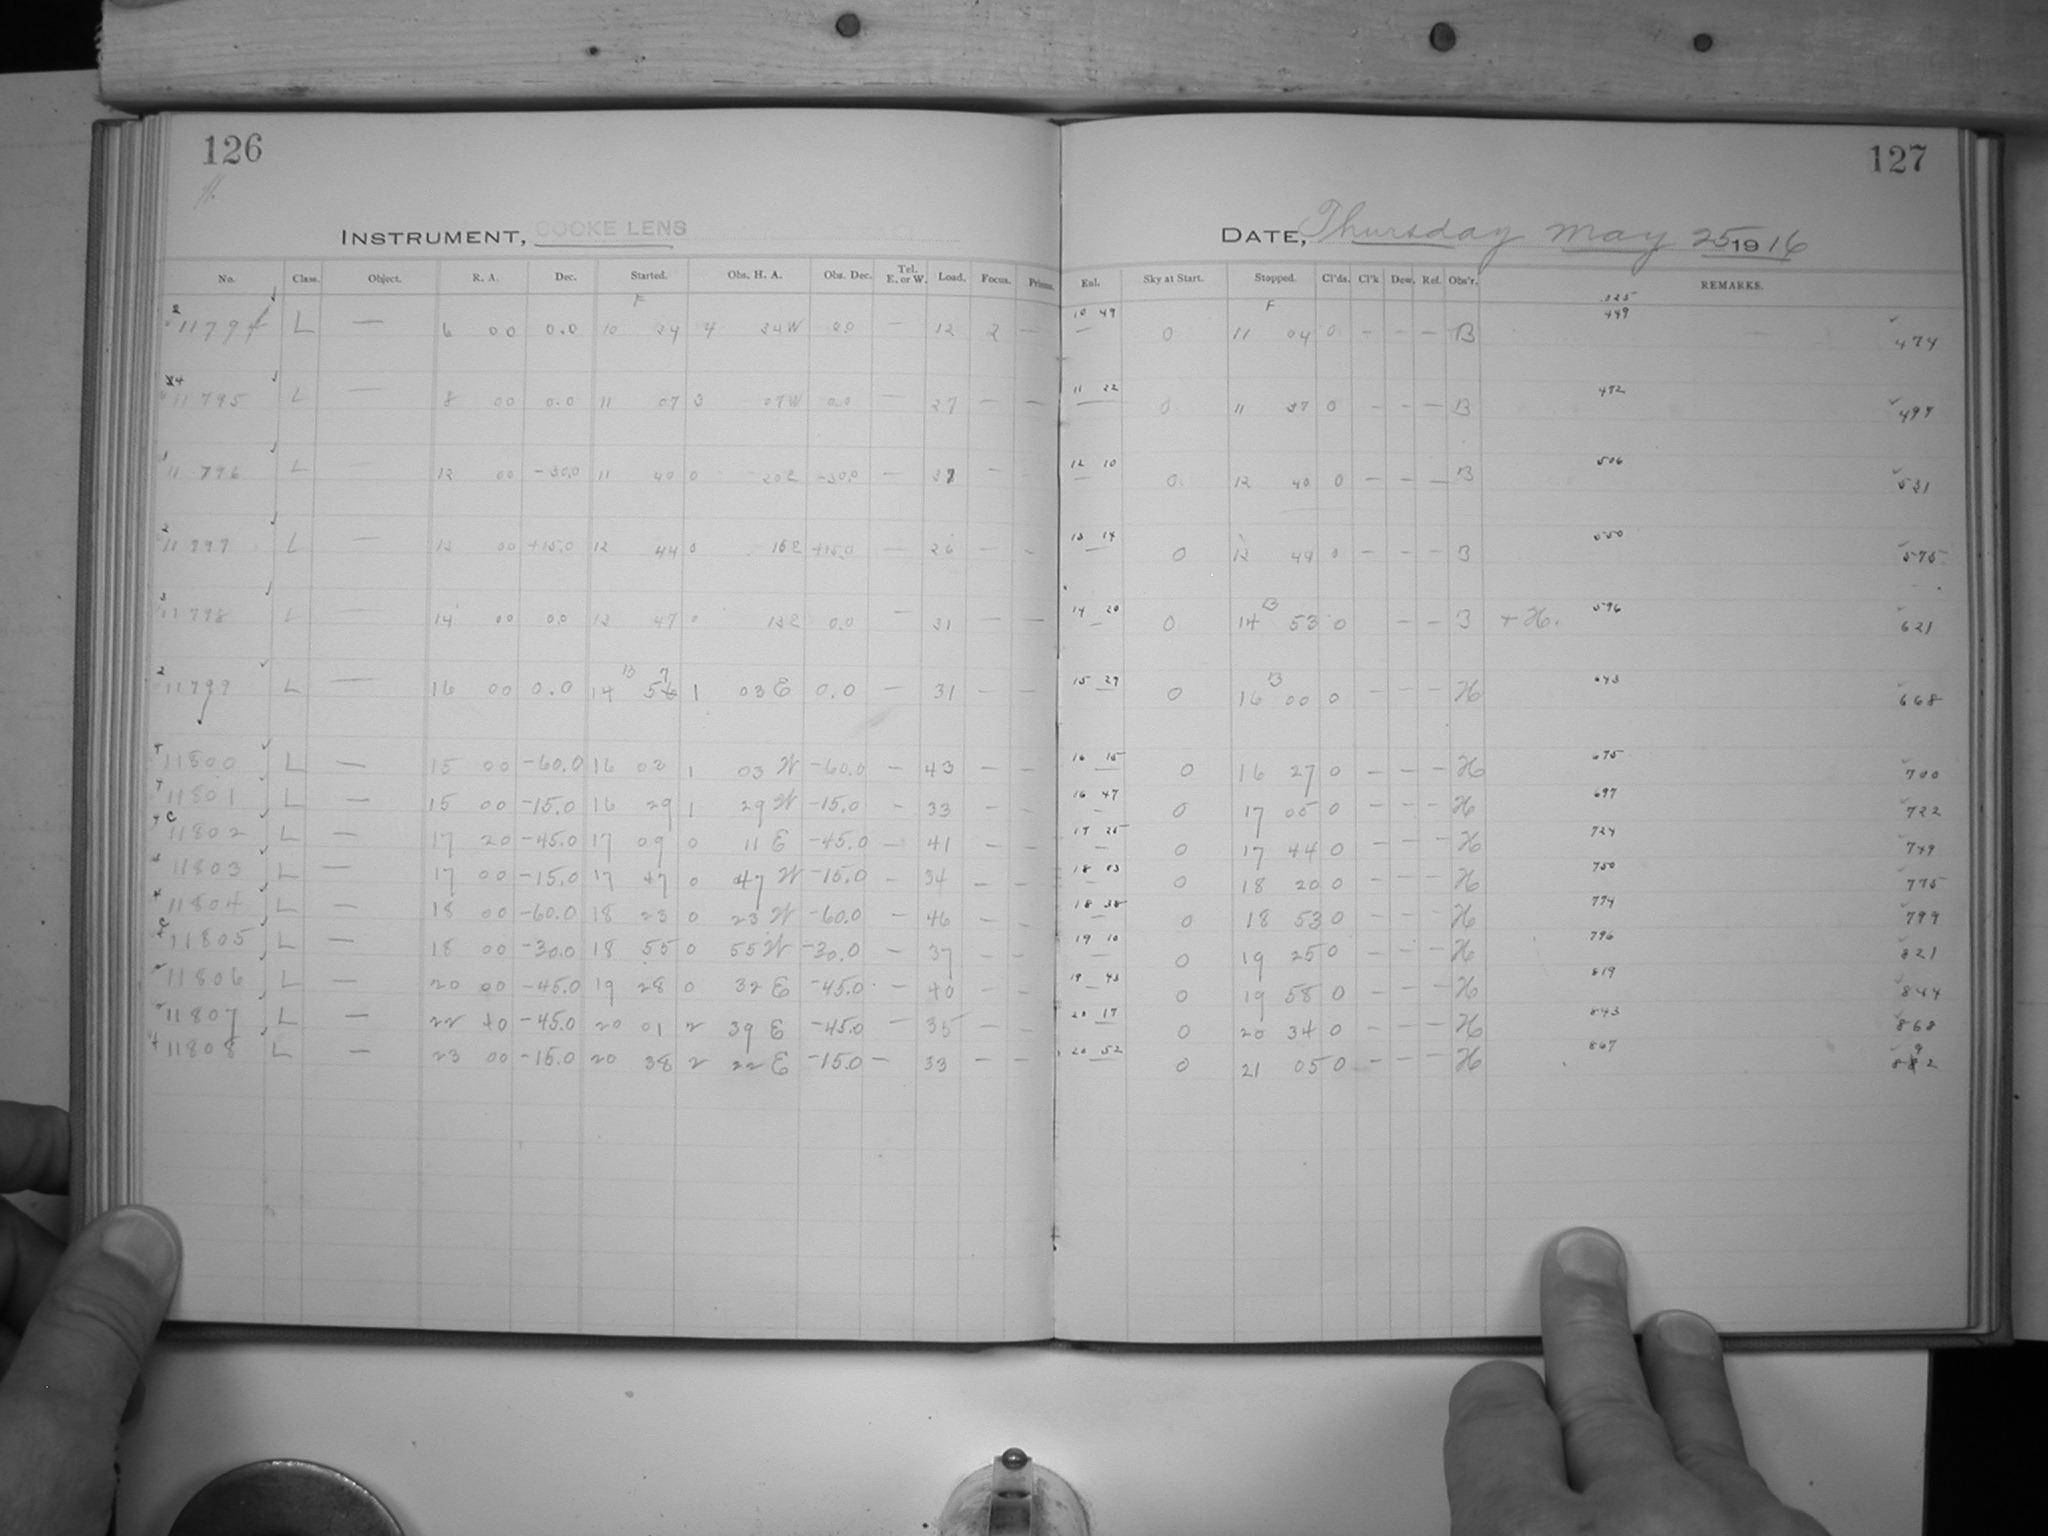 126
127
INSTRUMENT, COOKE LENS
DATE, Thursday May 25 1916
No. Class. Object. R. A. Dec. Started. Obs. H. A. Obs. Dec. Tel. E. or W. Load. Focus. Prisms. Enl. Sky at Start. Stopped. Cl'ds. Cl'k Dew. Ref. Obs'r. REMARKS.
F F .325
2 11794 L — 6 00 0.0 10 34 4 34 W 0.0 — 12 2 — 10 49 — 0 11 04 0 — — — B 449 474
11795 L — 8 00 0.0 11 07 3 07 W 0.0 — 27 — — 11 22 — 0 11 37 0 — — — B 472 497
11796 L — 12 00 -30.0 11 40 0 20 E -30.0 — 37 — — 12 10 — 0 12 40 0 — — — B 506 531
2 11797 L — 13 00 +15.0 12 44 0 16 E +15.0 — 26 — — 13 14 — 0 13 44 0 — — — B 550 575
3 11798 L — 14 00 0.0 13 47 0 13 E 0.0 — 31 — — 14 20 — 0 14 53 0 — — B + H. 596 621
B
2 11799 L — 16 00 0.0 14 56 7 1 03 E 0.0 — 31 — — 15 29 — 0 16 00 0 H 643 668
B 7 B
11800 L — 15 00 -60.0 16 03 1 03 W -60.0 — 43 — — 16 15 — 0 16 27 0 — — — H 675 700
11801 L — 15 00 -15.0 16 29 1 29 W -15.0 — 33 — — 16 47 — 0 17 05 0 — — — H 697 722
11802 L — 17 20 -45.0 17 09 0 11 E -45.0 — 41 — — 17 25 — 0 17 44 0 — — — H 724 749
11803 L — 17 00 -15.0 17 47 0 47 W -15.0 — 34 — — 18 03 — 0 18 20 0 — — — H 750 775
11804 L — 18 00 -60.0 18 23 0 23 W -60.0 — 46 — — 18 38 — 0 18 53 0 — — — H 774 799
11805 L — 18 00 -30.0 18 55 0 55 W -30.0 — 37 — — 19 10 — 0 19 25 0 — — — H 796 821
11806 L — 20 00 -45.0 19 28 0 32 E -45.0 — 40 — — 19 43 — 0 19 58 0 — — — H 819 844
11807 L — 22 40 -45.0 20 01 2 39 E -45.0 — 35 — — 20 17 — 0 20 34 0 — — — H 843 868
11808 L — 23 00 -15.0 20 38 2 22 E -15.0 — 33 — — 20 52 — 0 21 05 0 — — — H 867 882 9